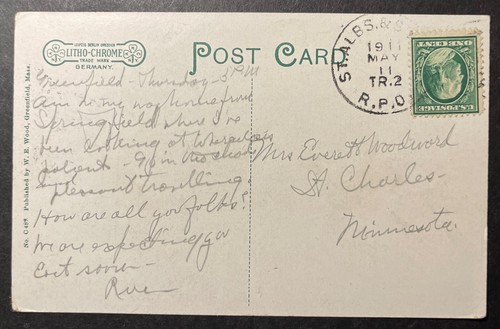 LEIPZIG BERLIN DRESDEN
LITHO-CHROME
TRADE MARK
GERMANY.
POST CARD
ST. ALBS. & S
1911
MAY
11
TR.2
R.P.O
U.S. POSTAGE
ONE CENT
No. C428 Published by W. R. Wood, Greenfield, Mass.
Greenfield - Thursday - 3 P.M
Am on my way home from
Springfield where I've
been looking at
patient
Pleasant travelling.
How are all you folks?
We are expecting you
East soon -
Mrs Everett Woodward
St. Charles -
Minnesota.